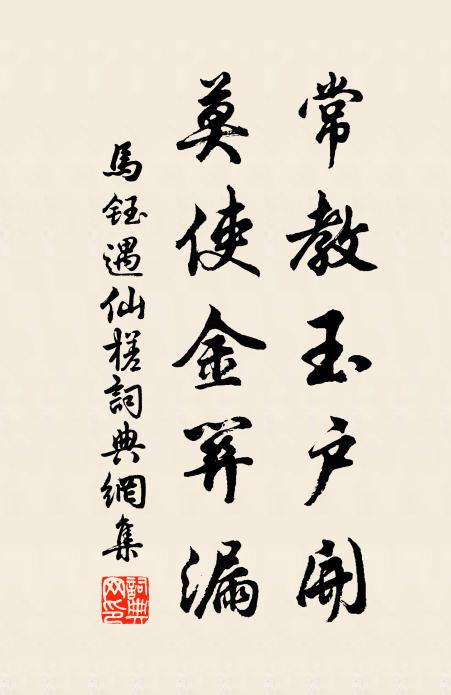 常教玉户開
莫使金關漏
馬鈺遇仙槎詞典網集
詞典
网印